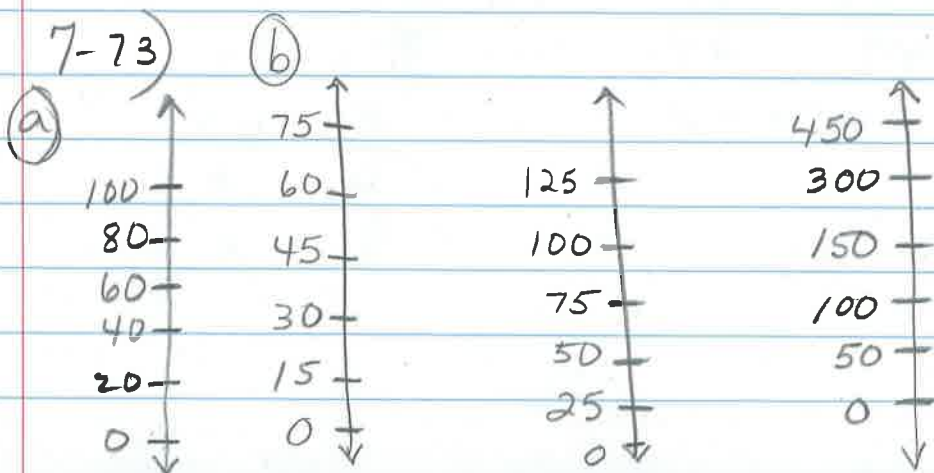 7-73)
a
100
80
60
40
20
0
b
75
60
45
30
15
0
125
100
75
50
25
0
450
300
150
100
50
0